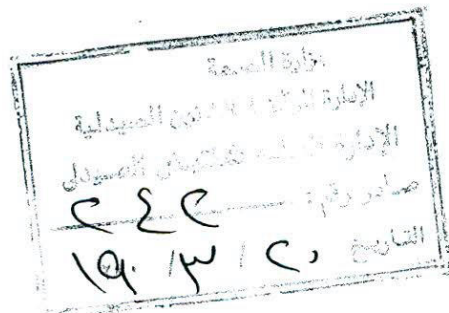 وزارة الصحة
الإدارة المركزية للشئون الصيدلية
الإدارة العامة للتفتيش الصيدلى
صادر رقم : ٢٤٢
التاريخ ٢٠ / ٣ / ١٩